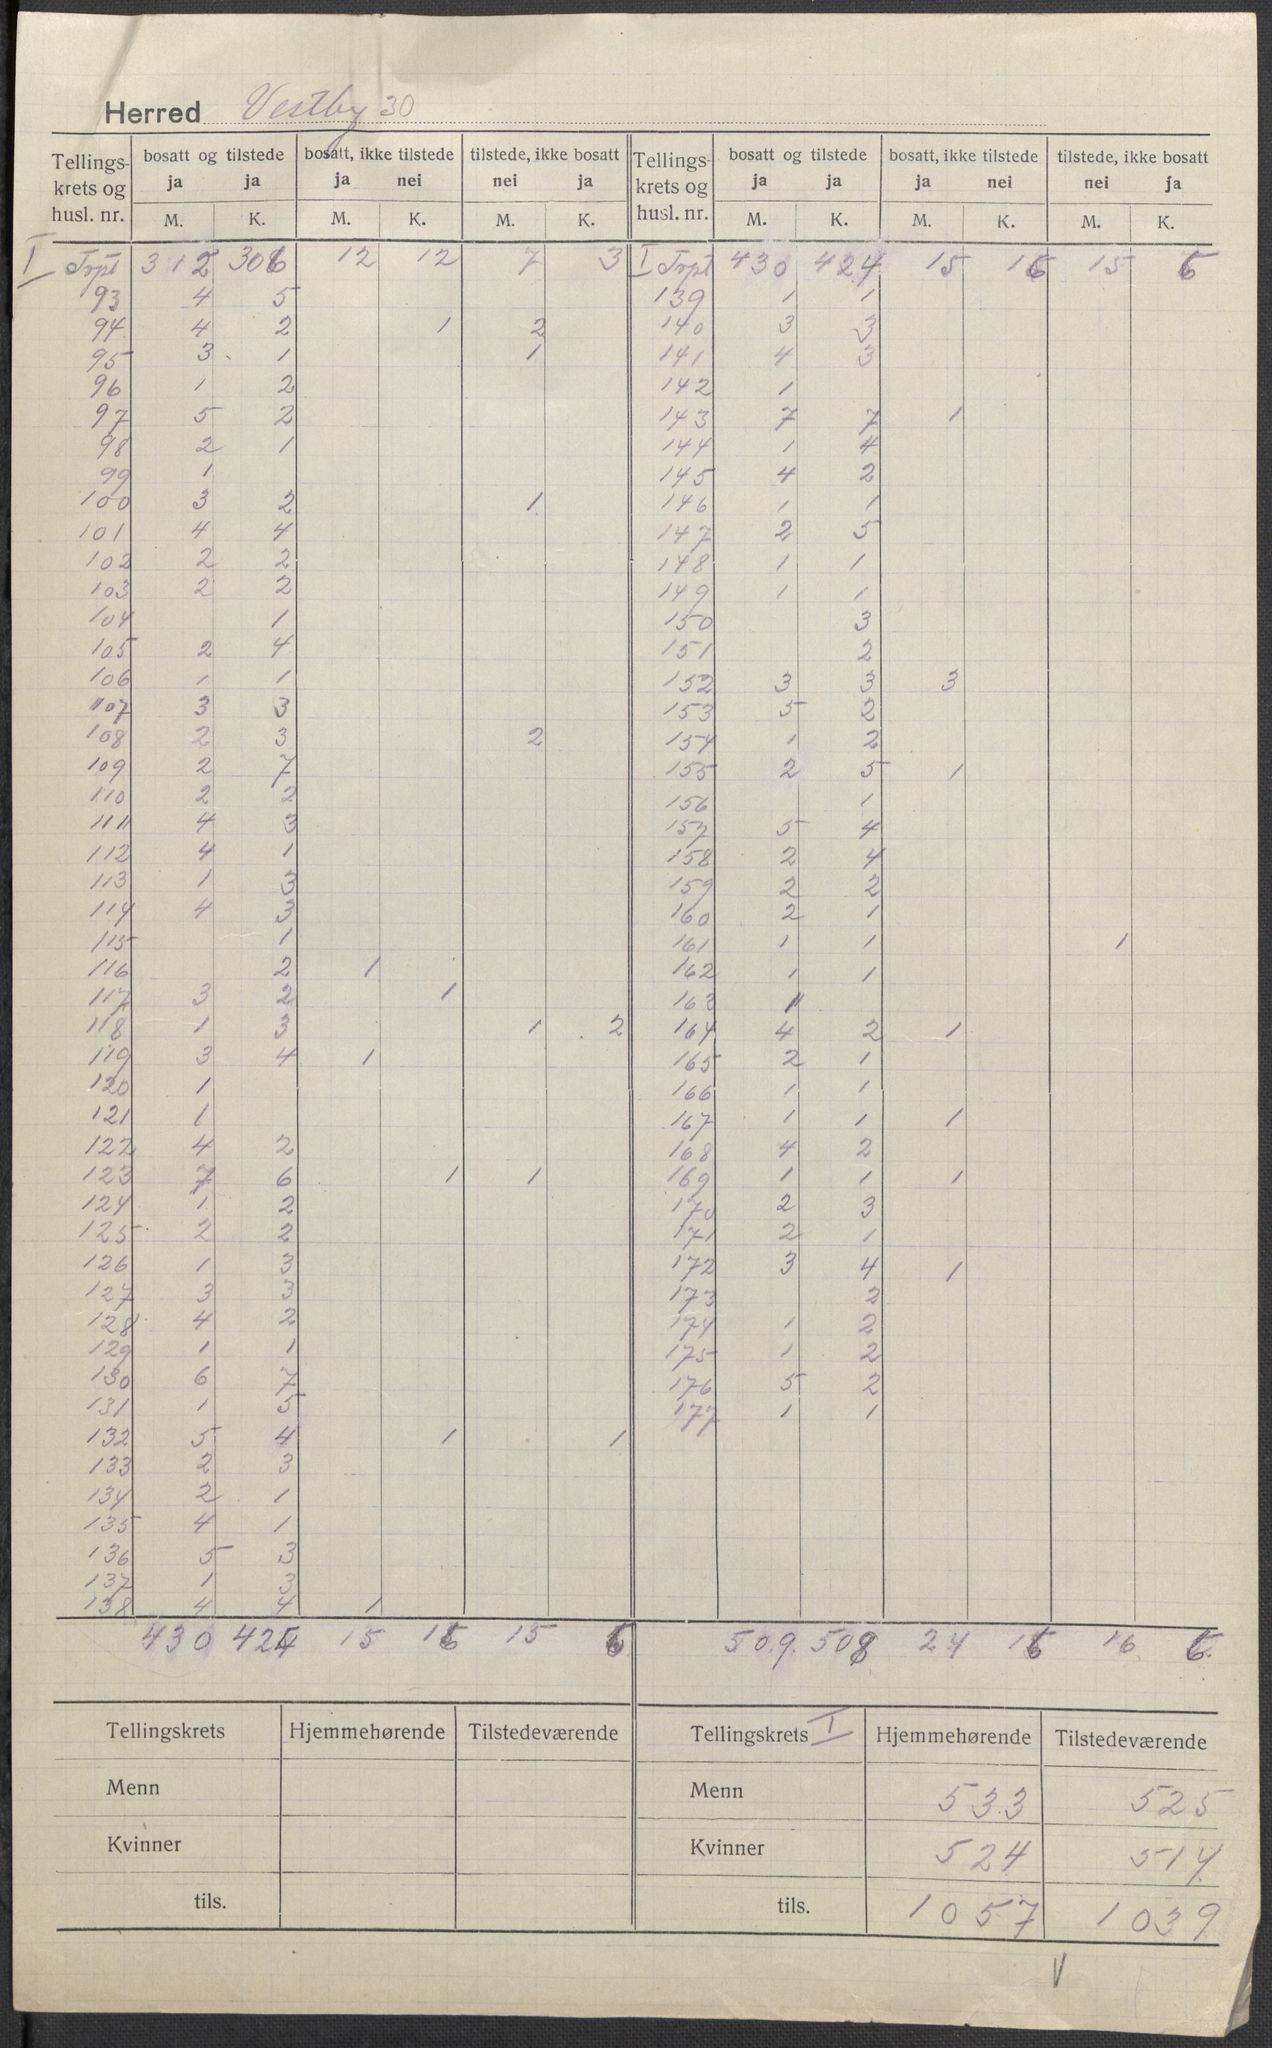 Herred Vestby 30
Tellings-krets og husl. nr. | bosatt og tilstede ja ja M. K. | bosatt, ikke tilstede ja nei M. K. | tilstede, ikke bosatt nei ja M. K. | Tellings-krets og husl. nr. | bosatt og tilstede ja ja M. K. | bosatt, ikke tilstede ja nei M. K. | tilstede, ikke bosatt nei ja M. K.
I Trpt 312 306 12 12 7 3 | I Trpt 430 424 15 16 15 6
93 4 5 | 139 1 1
94 4 2 1 2 | 140 3 3
95 3 1 1 | 141 4 3
96 1 2 | 142 1
97 5 2 | 143 7 7 1
98 2 1 | 144 1 4
99 1 | 145 4 2
100 3 2 1 | 146 1 1
101 4 4 | 147 2 5
102 2 2 | 148 1 1
103 2 2 | 149 1 1
104 1 | 150 3
105 2 4 | 151 2
106 1 1 | 152 3 3 3
107 3 3 | 153 5 2
108 2 3 2 | 154 1 2
109 2 7 | 155 2 5 1
110 2 2 | 156 1
111 4 3 | 157 5 4
112 4 1 | 158 2 4
113 1 3 | 159 2 2
114 4 3 | 160 2 1
115 1 | 161 1 1 1
116 2 1 | 162 1 1
117 3 2 1 | 163 1
118 1 3 1 2 | 164 4 2 1
119 3 4 1 | 165 2 1
120 1 | 166 1 1
121 1 | 167 1 1 1
122 4 2 | 168 4 2
123 7 6 1 1 | 169 1 1 1
124 1 2 | 170 2 3
125 2 2 | 171 2 1
126 1 3 | 172 3 4 1
127 3 3 | 173 2
128 4 2 | 174 1 2
129 1 1 | 175 1 2
130 6 7 | 176 5 2
131 1 5 | 177 1 1
132 5 4 1 1
133 2 3
134 2 1
135 4 1
136 5 3
137 1 3
138 4 4 1
430 424 15 16 15 6 | 509 508 24 16 16 6
Tellingskrets | Hjemmehørende | Tilstedeværende | Tellingskrets I | Hjemmehørende | Tilstedeværende
Menn | Menn 533 525
Kvinner | Kvinner 524 514
tils. | tils. 1057 1039
V